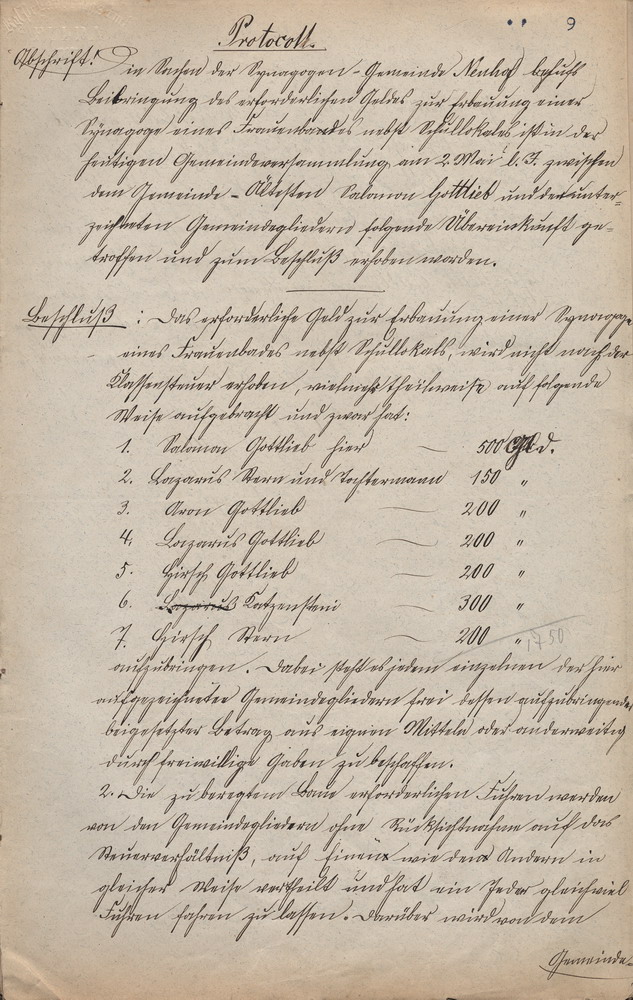 9
Protocoll.
Abschrift! In Sachen der Synagogen-Gemeinde Neuhof behufs
Beibringung des erforderlichen Geldes zur Erbauung einer
Synagoge eines Frauenbades nebst Schullokales ist in der
heutigen Gemeindeversammlung am 2. Mai l. J. zwischen
dem Gemeinde-Ältesten Salomon Gottlieb und den unter-
zeichneten Gemeindegliedern folgende Übereinkunft ge-
troffen und zum Beschluß erhoben worden.
Beschluß: Das erforderliche Geld zur Erbauung einer Synagoge
eines Frauenbades nebst Schullokals, wird nicht nach der
Klassensteuer erhoben, vielmehr theilweise auf folgende
Weise aufgebracht und zwar hat:
1. Salomon Gottlieb hier — 500 Gld.
2. Lazarus Stern und Tochtermann 150 "
3. Aron Gottlieb — 200 "
4. Lazarus Gottlieb — 200 "
5. Hirsch Gottlieb — 200 "
6. Lazarus Katzenstein — 300 "
7. Hirsch Stern — 200 "
1750
aufzubringen. Dabei steht es jedem einzelnen der hier
aufgezeichneten Gemeindegliedern frei dessen aufzubringender
beigesetzter Betrag aus eignen Mitteln oder anderweitig
durch freiwillige Gaben zu beschaffen.
2. Die zu beregtem Baue erforderlichen Fuhren werden
von den Gemeindegliedern ohne Rücksichtnahme auf das
Steuerverhältniß, auf Einem wie dem Andern in
gleicher Weise vertheilt und hat ein Jeder gleichviel
Fuhren fahren zu lassen. Darüber wird von dem
Gemeinde-